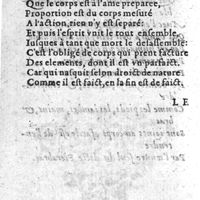 Que le corps est à l'ame preparee,
Proportion est du corps mesuré
A l'action, rien n'y est separé:
Et puis l'esprit voit le tout ensemble,
Iusques à tant que mort le dessassemble:
C'est l'obligé de corps qui prent facture
Des elements, dont il est vn parfaict.
Car qui nasquit selon droict de nature
Comme il est faict, en la fin est de faict.
L E